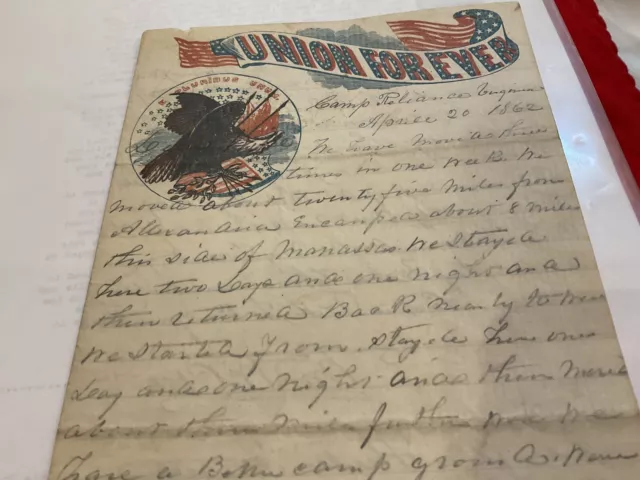 UNION FOREVER
E PLURIBUS UNUM
Camp Reliance Virginia
April 20 1862
We have moved three
times in one week We
moved about twenty five miles from
Alexandria Encamped about 8 miles
this side of Manassas We stayed
here two days and one night and
then returned Back nearly to where
we started from stayed there one
day and one night and then moved
about three miles further where we
have a Better camp ground